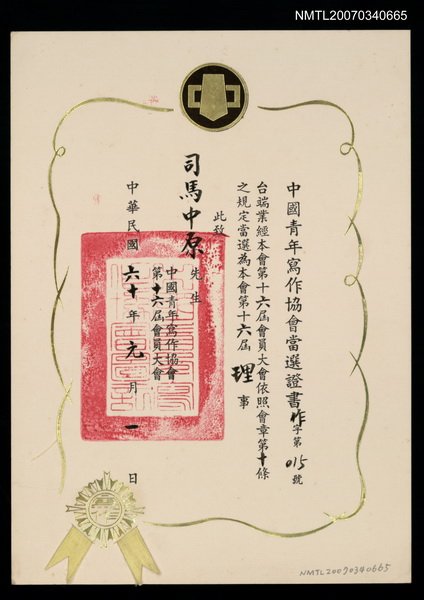 NMTL20070340665
中國青年寫作協會當選證書作字第015號
台端業經本會第十六屆會員大會依照會章第十條
之規定當選為本會第十六屆理事
此致
司馬中原先生
中國青年寫作協會
第十六屆會員大會
中華民國六十年元月一日
NMTL20070340665